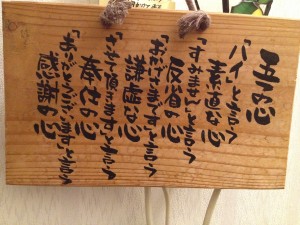 五心
「ハイ」と言う
素直な心
「すみません」と言う
反省の心
「おかげさまです」と言う
謙虚な心
「させて頂きます」と言う
奉仕の心
「ありがとうございます」と言う
感謝の心